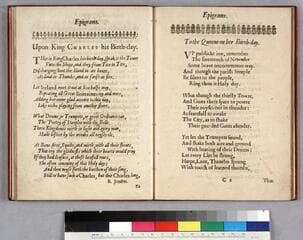 Epigrams.
Upon King CHARLES his Birth-day.
This is King Charles his birth-day, speak it the Tower
Unto the Ships, and they from Tire to Tire,
Discharging
Island as Thunder,
Let Ireland meet it out at Sea
Repeating all Great
Adding her owne glad accents to this day,
Like Eccho playing from another shore.
What Drums or Trumpets, or great Ordnance can,
The Poetry of Steeples with the Bells,
Three Kingdomes mirth in light and ayery man,
Made lighter by the
At Bone-fires, squibs, and mirth with all their shouts,
That cry the gladnesse which their hearts would pray
If they had leasure, at these lawfull routs,
The often comming of this Holy-day:
And then noyse forth the burthen of their song,
Still to have such a Charles, but this Charles long.
B. Jonson.
To
Epigrams.
To the Queene on her Birth-day.
VP publicke joy, remember
The sixteenth of November
Some brave uncommon way.
And though the parish Steeple
Be silent to the people,
Ring thou it Holy-day.
What though the thrifty Tower,
And Guns there spare to powre
Their noyses out in thunder:
As fearfull to awake
The City, as to
Their guarded Gates asunder.
Yet let the Trumpets sound,
And shake both ayre and ground
With beating of their Drums:
Let every Lire be strung,
Harpe, Lute, Theorbo sprung
With touch of learned thumbs,
That